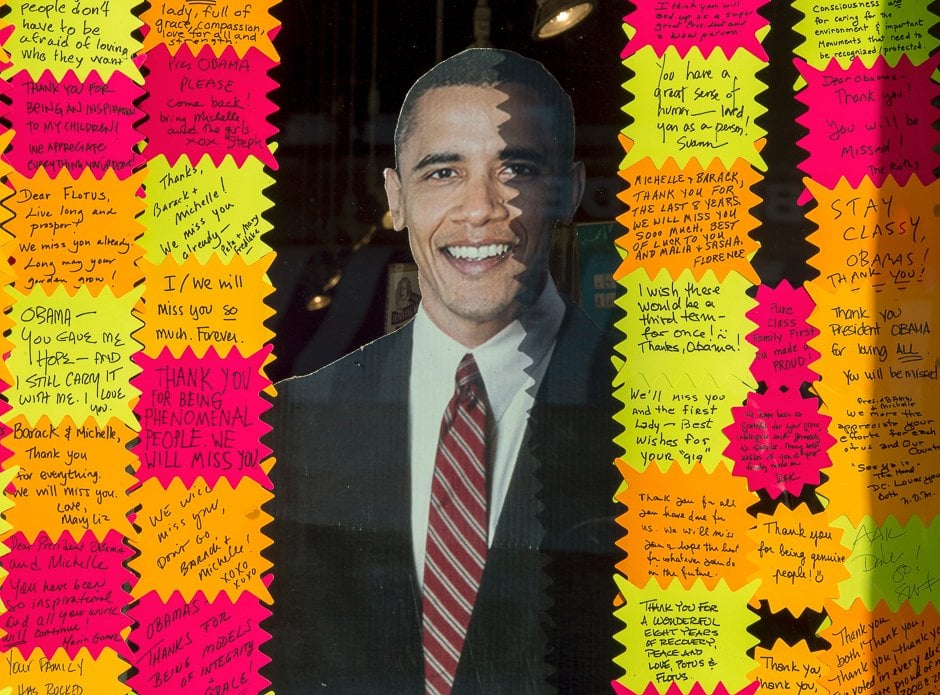 people don't
have to be
afraid of loving
who they want
THANK YOU FOR
BEING AN INSPIRATION
TO MY CHILDREN!
WE APPRECIATE
EVERYTHING YOU'VE DONE!
Dear FLOTUS,
Live long and
prosper!
We miss you already.
Long may your
garden grow!
OBAMA —
YOU GAVE ME
HOPE — AND
I STILL CARRY IT
WITH ME. I love
you.
Barack & Michelle,
Thank you
for everything.
We will miss you.
Love,
Mary Liz
Dear President Obama
and Michelle
You have been
so inspirational
and all your work
will continue!
Maria Gomez
Your FAMILY
HAS ROCKED
lady, full of
grace, compassion,
love for all and
strength.
Pres OBAMA
PLEASE
come back!
bring Michelle,
and the girls
xoxo Steph
Thanks,
Barack +
Michelle!
We miss you
already —
Pete + Mary
I/We will
miss you so
much. Forever.
THANK YOU
FOR BEING
PHENOMENAL
PEOPLE. WE
WILL MISS YOU
WE WILL
miss you,
DONT GO,
BARACK +
Michelle!
XOXO
XOXO
OBAMAS -
THANKS FOR
BEING MODELS
OF INTEGRITY
& GRACE
I think you will
end up as a super
great President and
a
person.
You have a
great sense of
humor — loved
you as a person.
Suann
MICHELLE & BARACK,
THANK YOU FOR
THE LAST 8 YEARS.
WE WILL MISS YOU
SOOO MUCH. BEST
OF LUCK TO YOU
AND MALIA & SASHA.
FLORENCE
I wish there
would be a
third term-
for once! :)
Thanks, Obama!
We'll miss you
and the first
Lady — Best
wishes for
your "gig"
Thank you for all
you have done for
us. We will miss
you & hope the best
for whatever you do
in the future.
THANK YOU FOR
A WONDERFUL
EIGHT YEARS
OF RECOVERY,
PEACE AND
LOVE, POTUS &
FLOTUS
Pure
Class
Family First
You made us
PROUD!
DAK
Thank you
for being genuine
people! :)
Thank you,
Consciousness and
for caring for the
environment & important
Monuments that need to
be recognized/protected.
Dear Obamas-
Thank you!
You will be
Missed!
STAY
CLASSY,
OBAMAS!
THANK YOU!
Thank you
President OBAMA
for loving ALL.
You will be missed
Pres. OBAMA
& Michelle
We more the
appreciate your
efforts for each
of us and Our
Country
"See Ya in
The Hood"
D.C. Loves you
Both
Thank you
both! Thank you,
Thank you, Thank you